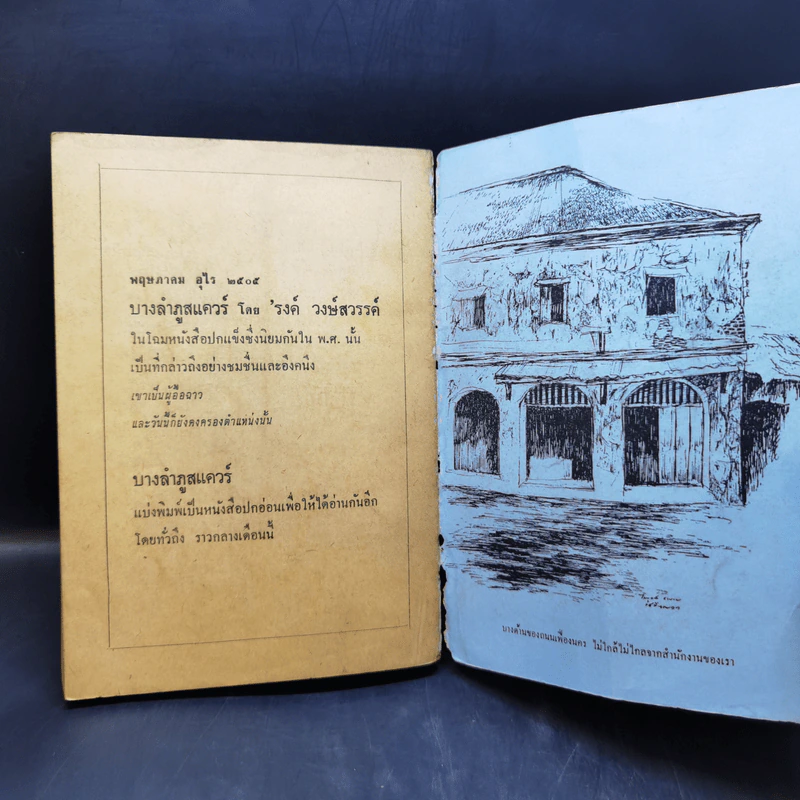 พฤษภาคม อุไร ๒๕๐๕
บางลำภูสแควร์ โดย 'รงค์ วงษ์สวรรค์
ในโฉมหนังสือปกแข็งซึ่งนิยมกันใน พ.ศ. นั้น
เป็นที่กล่าวถึงอย่างชมชื่นและอึงคนึง
เขาเป็นผู้อื้อฉาว
และวันนี้ก็ยังคงครองตำแหน่งนั้น
บางลำภูสแควร์
แบ่งพิมพ์เป็นหนังสือปกอ่อนเพื่อให้ได้อ่านกันอีก
โดยทั่วถึง ราวกลางเดือนนี้
บางด้านของถนนเฟื่องนคร ไม่ใกล้ไม่ไกลจากสำนักงานของเรา